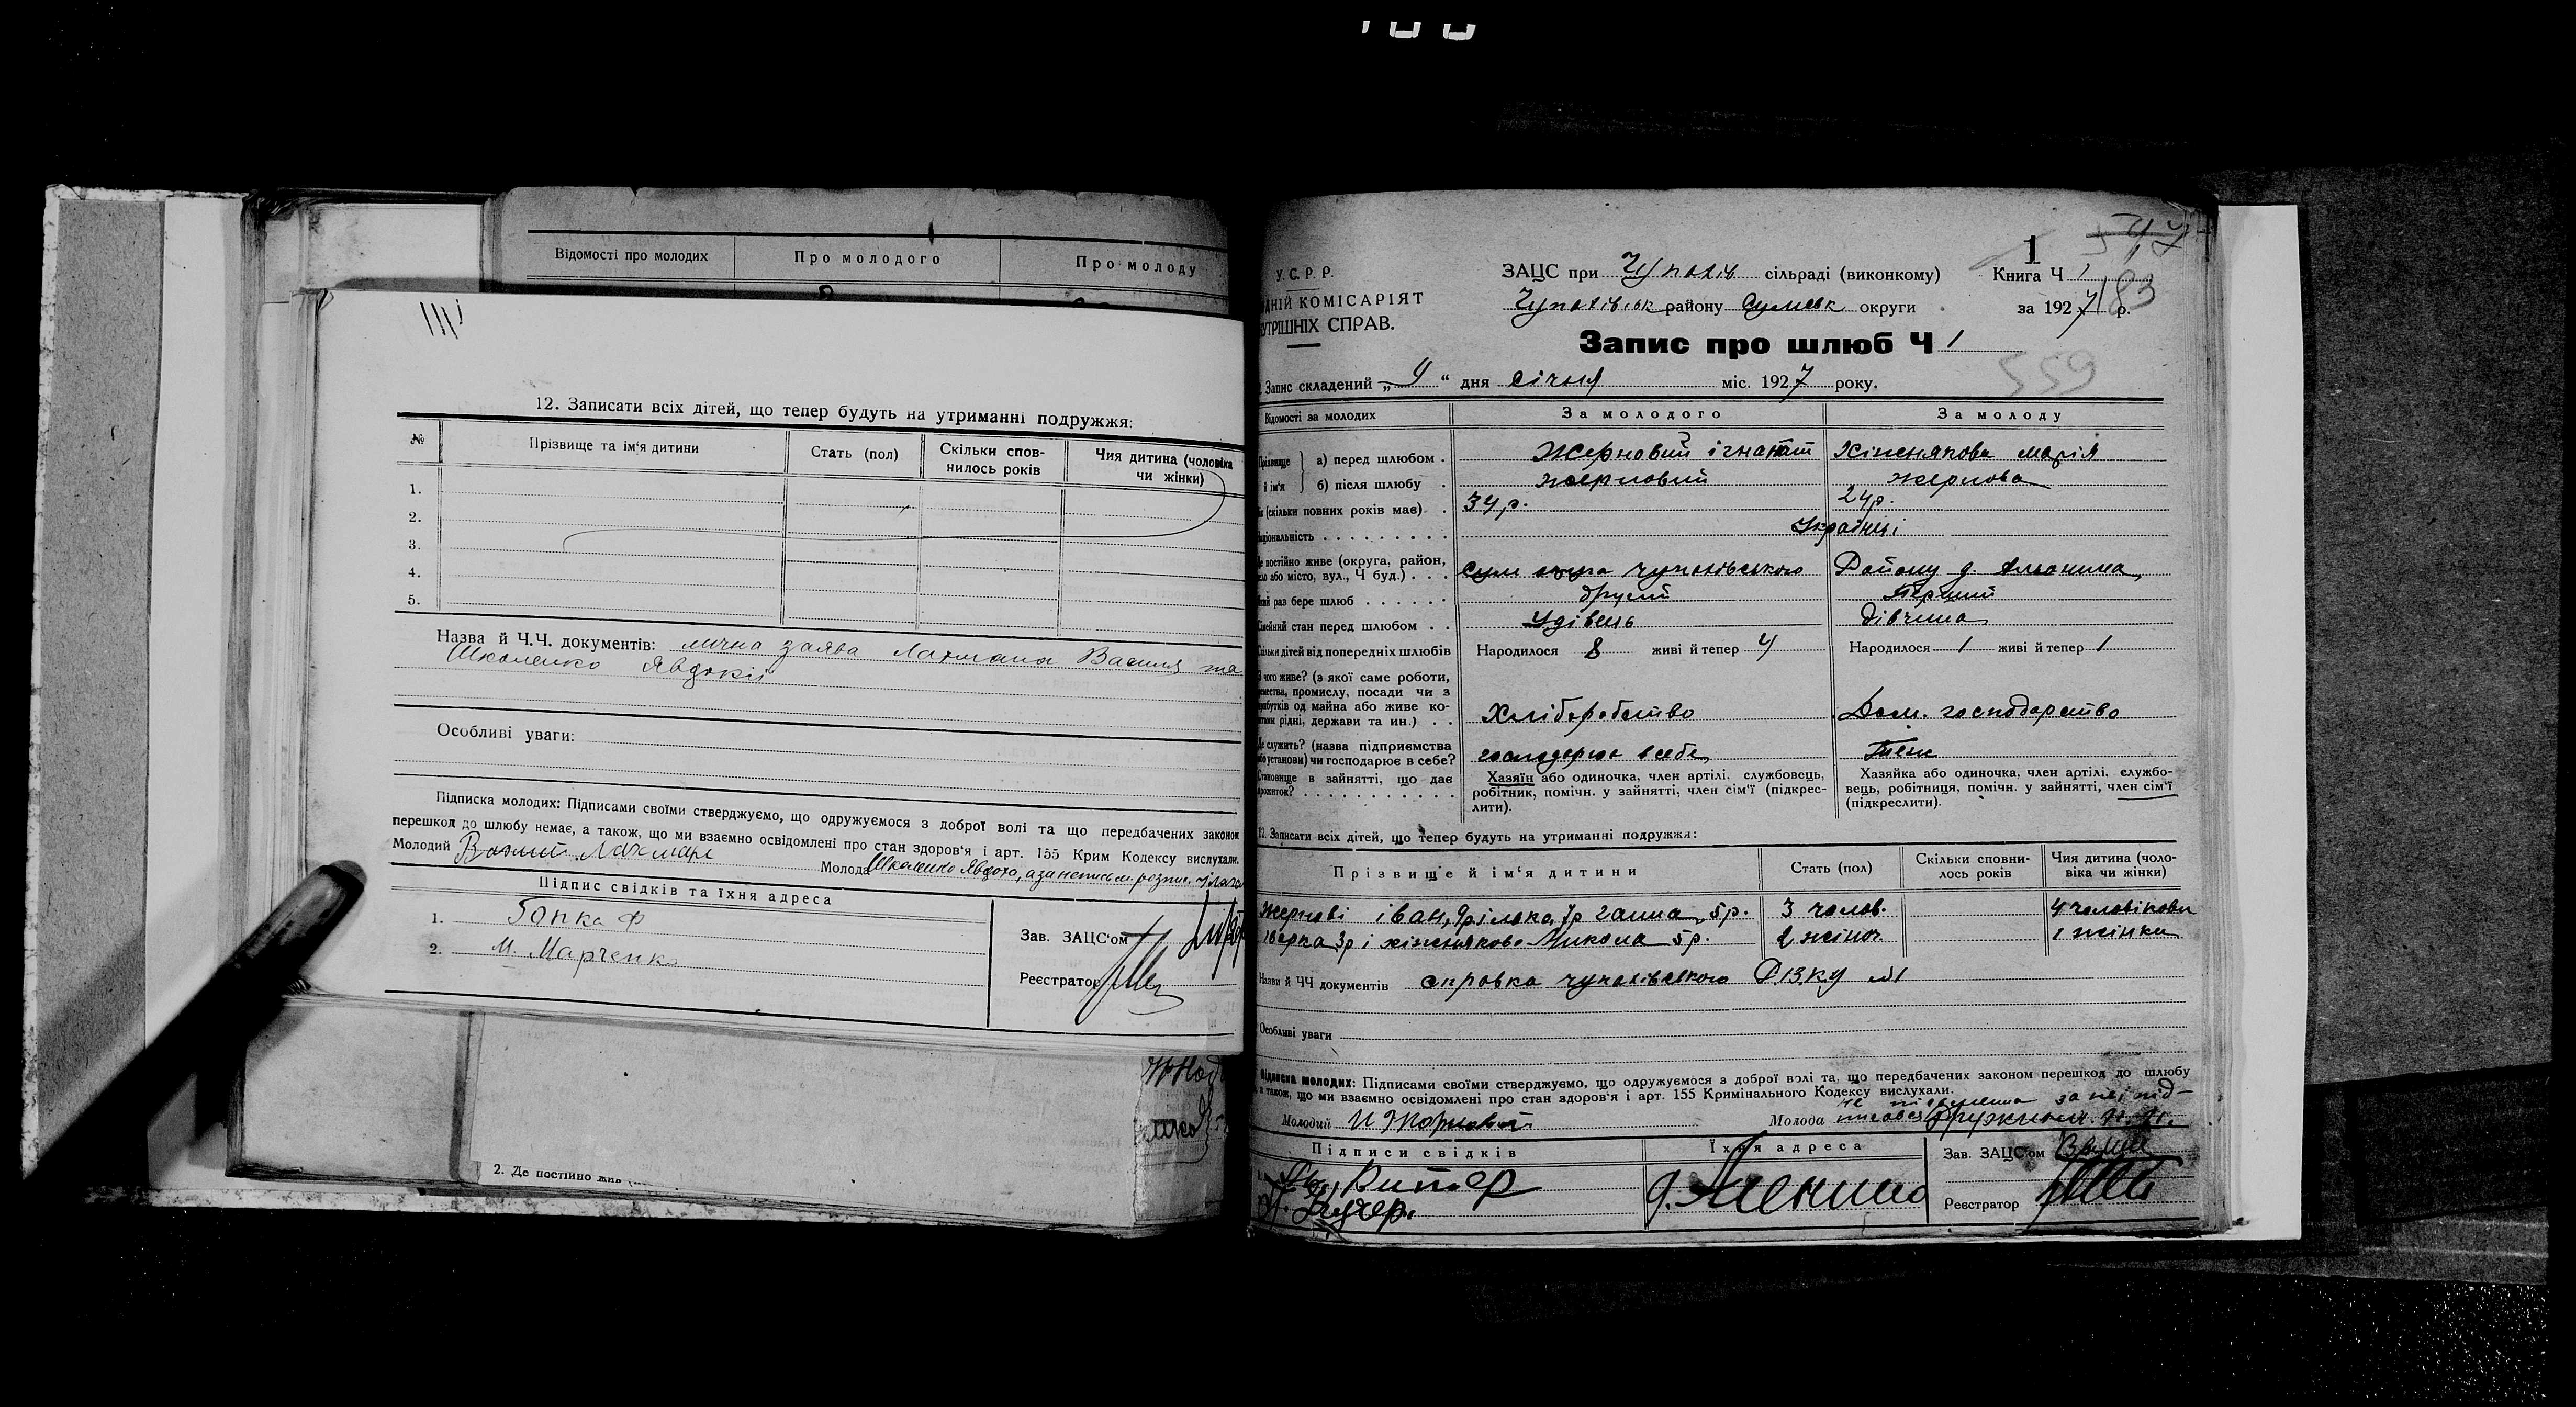 Відомості про молодих
Про молодого
Про молоду
12. Записати всіх дітей, що тепер будуть на утриманні подружжя:
№
Прізвище та ім'я дитини
Стать (пол)
Скільки спов-
нилось років
Чия дитина (чоловіка
чи жінки)
1.
2.
3.
4.
5.
Назва й Ч.Ч. документів: лична заява Лахмана Василя та
Школенко Явдокії
Особливі уваги:
Підписка молодих: Підписами своїми стверджуємо, що одружуємося з доброї волі та що передбачених законом
перешкод до шлюбу немає, а також, що ми взаємно освідомлені про стан здоров'я і арт. 155 Крим Кодексу вислухали.
Молодий
Молода Школенко Явдоха, а за неписьм. розпис.
Підпис свідків та їхня адреса
1. Гопка Ф
2. М. Марченко
Зав. ЗАЦС'ом
Реєстратор
2. Де постійно жив
У. С. Р. Р.
ДНІЙ КОМІСАРІЯТ
УТРІШНІХ СПРАВ.
ЗАЦС при Чупахів сільраді (виконкому)
Чупахівськ району Сумськ округи
1
Книга Ч 1
за 1927 р.
83
Запис про шлюб Ч 1
559
Запис складений „9" дня січня міс. 1927 року.
Відомості за молодих
За молодого
За молоду
Прізвище й ім'я
а) перед шлюбом . Жерновий ігнат Хіжнякова марія
б) після шлюбу . жерновий жернова
(скільки повних років має) . 34 р. 24 р.
Національність . . . Українці
постійно живе (округа, район,
або місто, вул., Ч буд.) . . . Сум округа чупахівського Району д.
раз бере шлюб . . . другий Перший
Сімейний стан перед шлюбом . . Удівець дівчина
Скільки дітей від попередніх шлюбів Народилося 8 живі й тепер 4 Народилося 1 живі й тепер 1
З чого живе? (з якої саме роботи,
ремества, промислу, посади чи з
прибутків од майна або живе ко-
штами рідні, держави та ин.) . . Хліборобство Дом. господарство
Де служить? (назва підприємства
або установи) чи господарює в себе? господарює в себе Теж
Становище в зайнятті, що дає
прожиток? . . .
Хазяїн або одиночка, член артілі, службовець,
робітник, помічн. у зайнятті, член сім'ї (підкрес-
лити).
Хазяйка або одиночка, член артілі, службо-
вець, робітниця, помічн. у зайнятті, член сім'ї
(підкреслити).
12. Записати всіх дітей, що тепер будуть на утриманні подружжя:
Прізвище й ім'я дитини
Стать (пол)
Скільки сповни-
лось років
Чия дитина (чоло-
віка чи жінки)
Жернові іван, 9р 7р ганна 5р. 3 чолов. 4 чоловікови
3р і хіжнякова Микола 5р. 2 жіноч. 1 жінки
Назви й ЧЧ документів справка чупахівського
Особливі уваги
Підписка молодих: Підписами своїми стверджуємо, що одружуємося з доброї волі та, що передбачених законом перешкод до шлюбу
а також, що ми взаємно освідомлені про стан здоров'я і арт. 155 Кримінального Кодексу вислухали.
Молодий И Жорновой
Молода не за неї під-
Підписи свідків
Їхня адреса
Кучер.
Зав. ЗАЦС'ом
Реєстратор